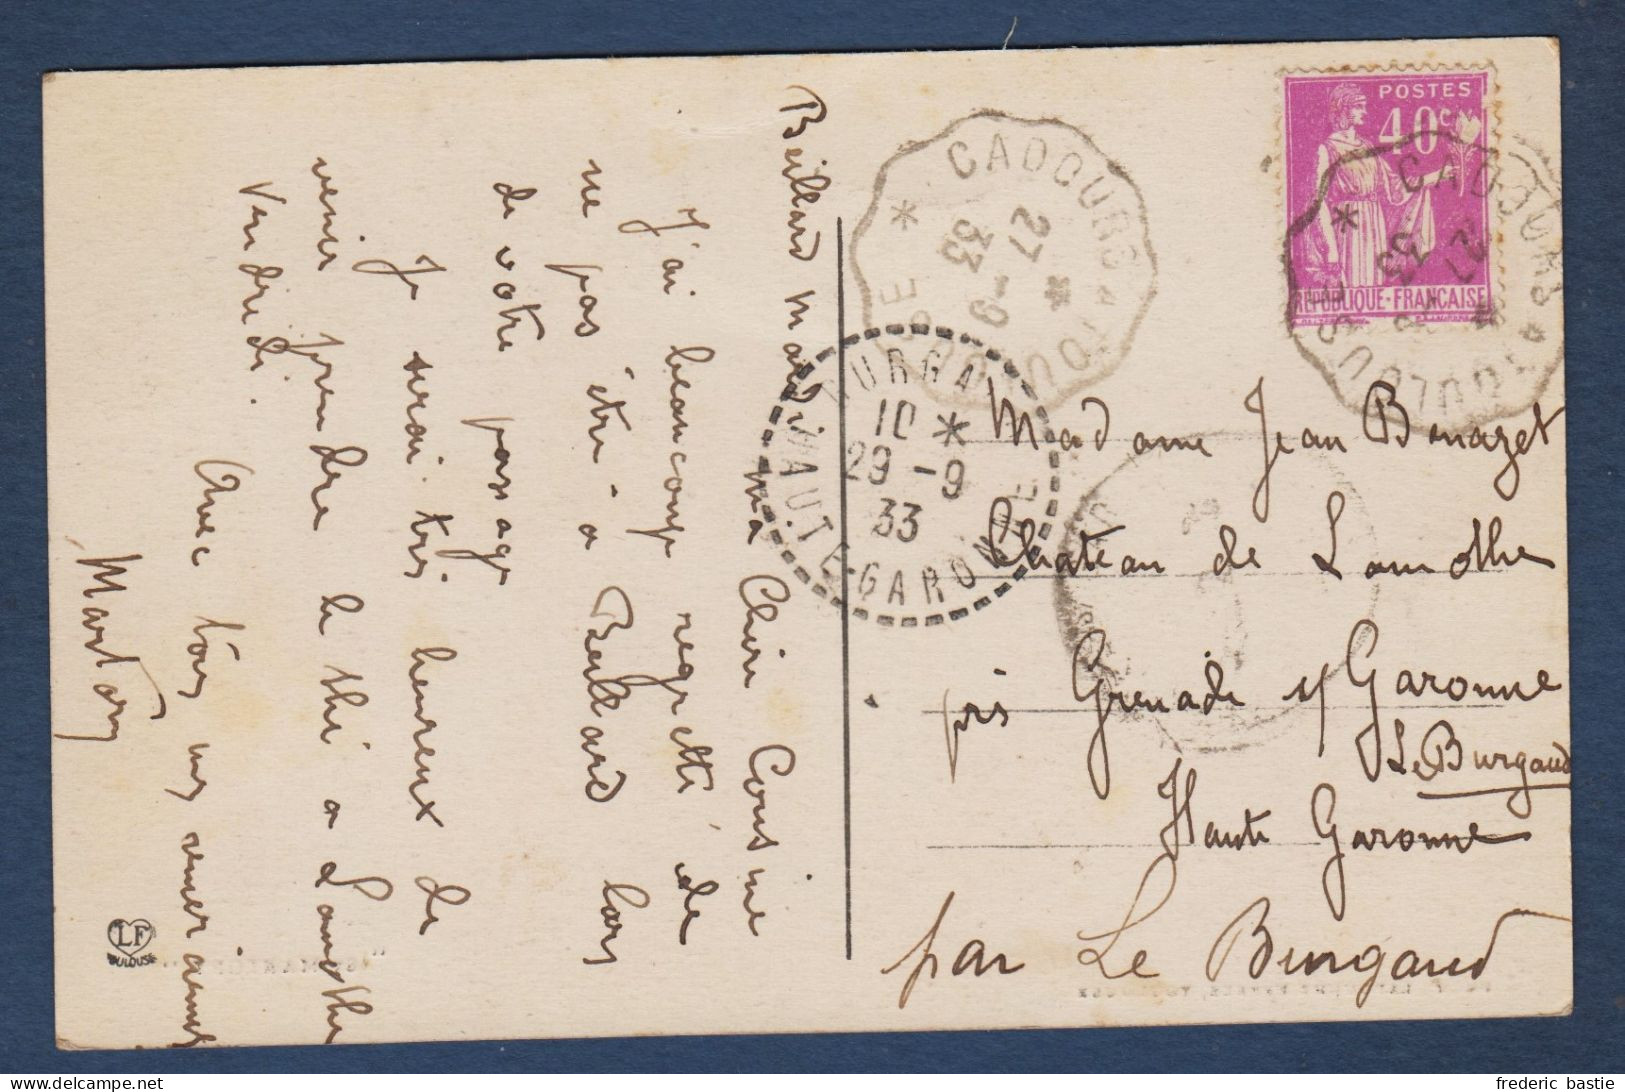 Beillard Mardi
ma Chère Cousine
J'ai beaucoup regretté de
ne pas être à Beillard lors
de votre passage
Je serai très heureux de
venir prendre le thé à Lamothe
Vendredi.
Avec tous mes
Martory
LF
TOULOUSE
CADOURS A TOULOUSE
27 -9
33
BURGA
10 *
29 -9
33
HAUTE-GARONNE
POSTES
40c
RÉPUBLIQUE-FRANÇAISE
CADOURS A TOULOUSE
27 -9
33
Madame Jean Benazet
Château de Lamothe
près Grenade s/ Garonne
Le Burgaud
Haute Garonne
par Le Burgaud
frederic bastie